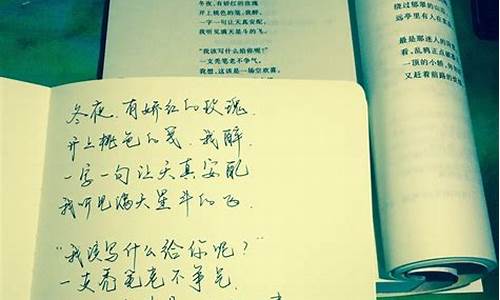 冬夜，有娇红的玫瑰
开上桃色的笺，我醉，
一字一句让天真安配
我听见满天星斗的飞。
"我该写什么给你呢？"
一支秃笔老不争气，
我想，这该是一场空欢喜。
绕过郁翠的山
远亭里有人在
最是那迷人的
看，乱鸦正点
一顶的小轿，
又赶着前路的
冬夜，有娇红的玫瑰
开上桃色的笺，我醉，
一字一句让天真安配
我听见满天星斗的飞
"我该写什么给你呢？"
一支秃笔老不争气